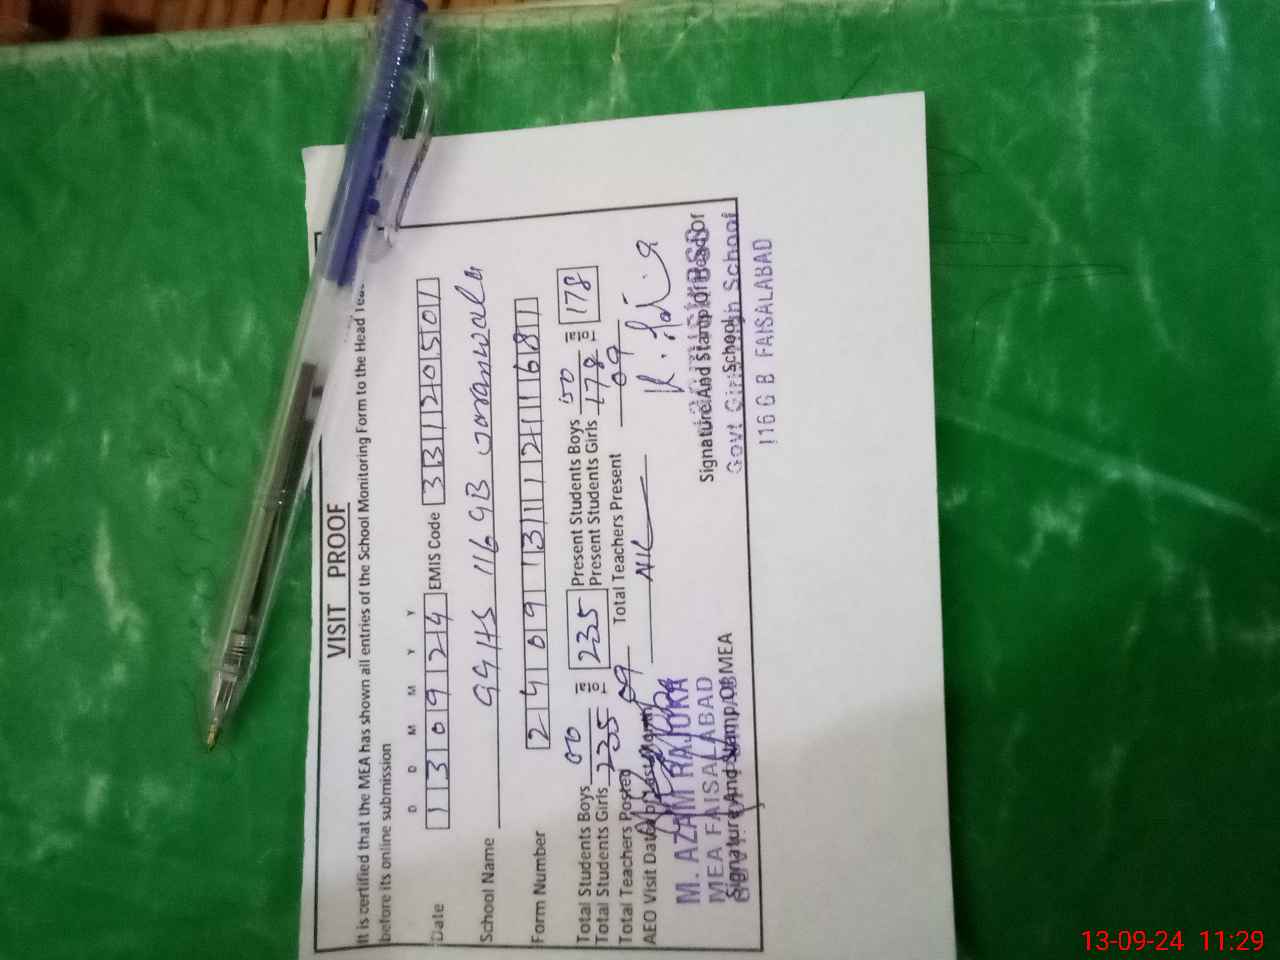 VISIT PROOF
It is certified that the MEA has shown all entries of the School Monitoring Form to the Head
before its online submission
D D M M Y Y
Date 1 3 0 9 2 4 EMIS Code 3 3 1 2 0 5 0 1
School Name GGHS 116 GB Jaranwala
Form Number 2 4 0 9 1 3 1 1 2 1 1 6 8 1
Total Students Boys 00 = 235 Present Students Boys 00 = 178
Total Students Girls 235 Present Students Girls 178
Total Teachers Posted 09 Total Teachers Present 09
AEO Visit Date of Last Month NIL
M. AZAM RAJOKA
MEA FAISALABAD
Signature And Stamp Of MEA
Signature And Stamp Of Head Of
School
Govt Girls High School
116 G B FAISALABAD
13-09-24 11:29